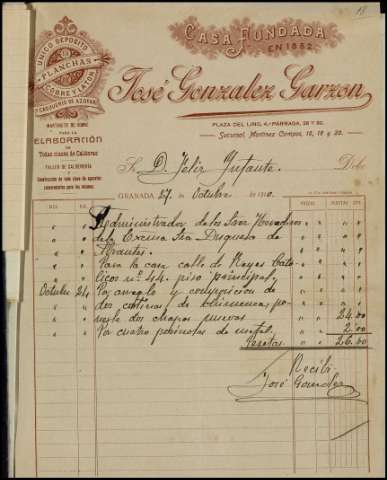 18
CASA FUNDADA
EN 1852
ÚNICO DEPÓSITO
DE
PLANCHAS
DE
COBRE Y LATÓN
Y CASQUERÍO DE AZÓFAR
MARTINETE DE COBRE
PARA LA
ELABORACIÓN
DE
Todas clases de Calderas
TALLER DE CALDERERÍA
Construcción de toda clase de aparatos
José Gonzalez Garzon
PLAZA DEL LINO, 4.-PÁRRAGA, 28 Y 30.
Sucursal, Martinez Campos, 16, 18 y 20.
Sr. D. Feliz Infante Debe
GRANADA 27 de Octubre de 1910.
MES DIA PESETAS CTS.
Administrador de los Sres Herederos
de la Excma Sra Duquesa de
Abrantes
Para la casa calle de Reyes Cato
licos nº 44 piso principal
Octubre 24 Por arreglo y composicion de
dos cortinas de chimeneas, po
nerle dos chapas nuevas 24.00
Por cuatro perinolas de metal 2.00
Pesetas 26.00
Recibi
José Gonzalez